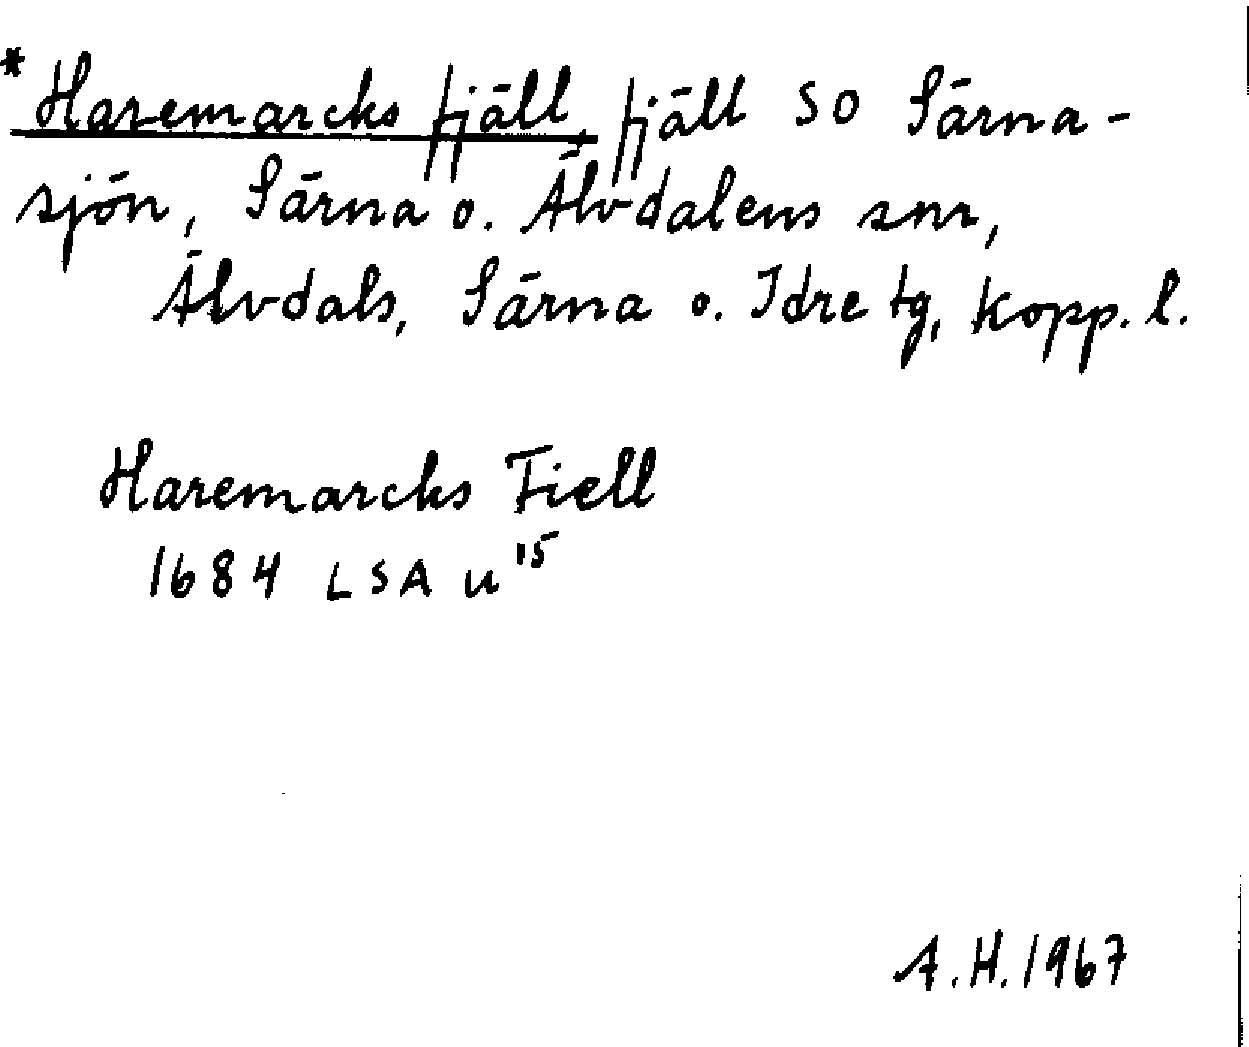 *Haremarcks fjäll, fjäll SO Särna-
sjön, Särna o. Älvdalens snr,
Älvdals, Särna o. Idre tg, Kopp. l.
Haremarcks Fiell
1684 LSA U 15
A.H. 1967